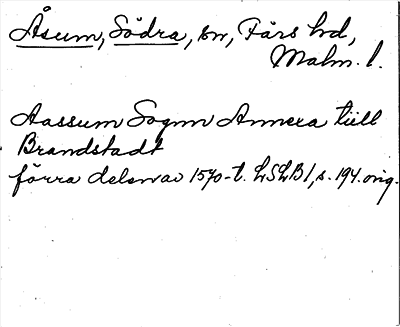 Åsum, Södra, sn, Färs hd,
Malm. l.
Aassum Sognn Annexa till
Brandstadt
förra delen av 1570-t. LSLB 1, s. 194. orig.